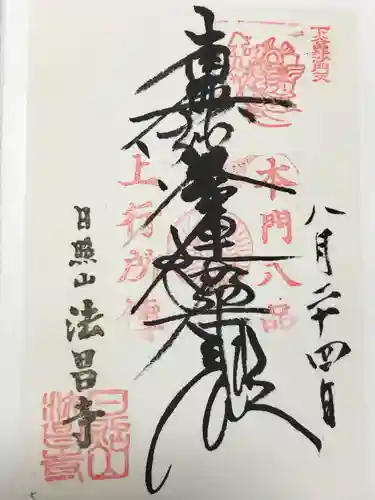 八月二十四日
下谷毘沙門天
本門八品
南無妙法蓮華経
上行所傳
日照山
法昌寺